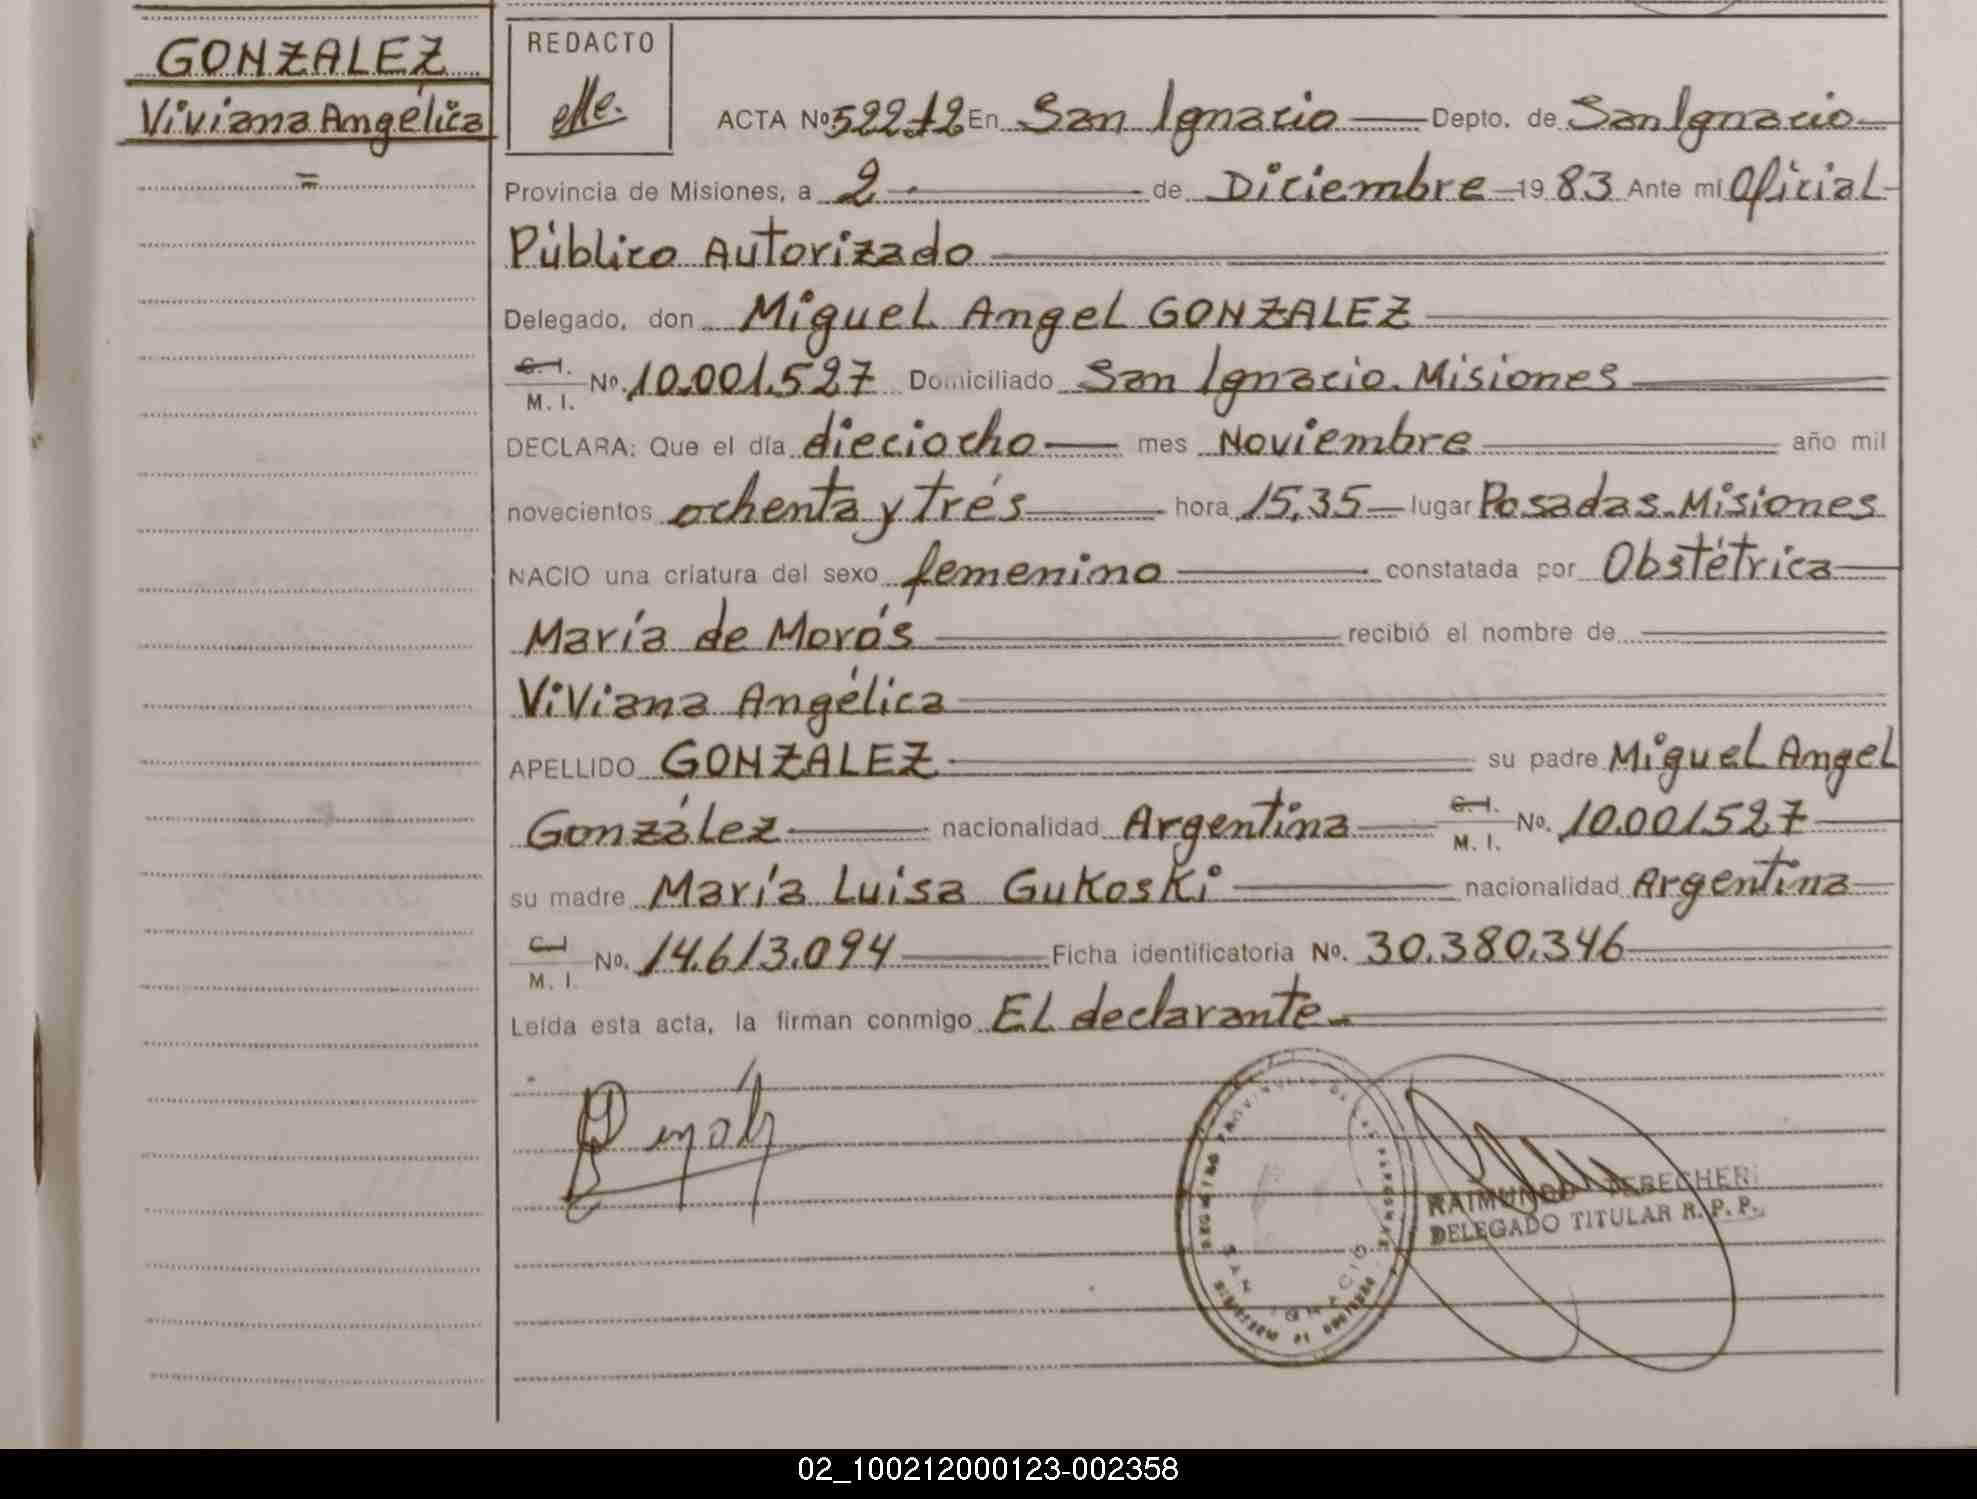 GONZALEZ
Viviana Angélica
=
REDACTO
ACTA Nº 52272 En San Ignacio Depto. de San Ignacio
Provincia de Misiones, a 2 de Diciembre 19 83 Ante mi Oficial
Público Autorizado
Delegado, don Miguel Angel GONZALEZ
C. I. M. I. Nº. 10.001.527 Domiciliado San Ignacio. Misiones
DECLARA: Que el día dieciocho mes Noviembre año mil
novecientos ochenta y trés hora 15,35 lugar Posadas. Misiones
NACIO una criatura del sexo femenino constatada por Obstétrica
María de Morás recibió el nombre de
Viviana Angélica
APELLIDO GONZALEZ su padre Miguel Angel
González nacionalidad Argentina C. I. M. I. Nº. 10.001527
su madre María Luisa Gukoski nacionalidad Argentina
C. I. M. I. Nº. 14.613.094 Ficha identificatoria Nº. 30.380.346
Leída esta acta, la firman conmigo El declarante
SAN IGNACIO
RAIMUNDO
DELEGADO TITULAR R. P. P.
02_100212000123-002358